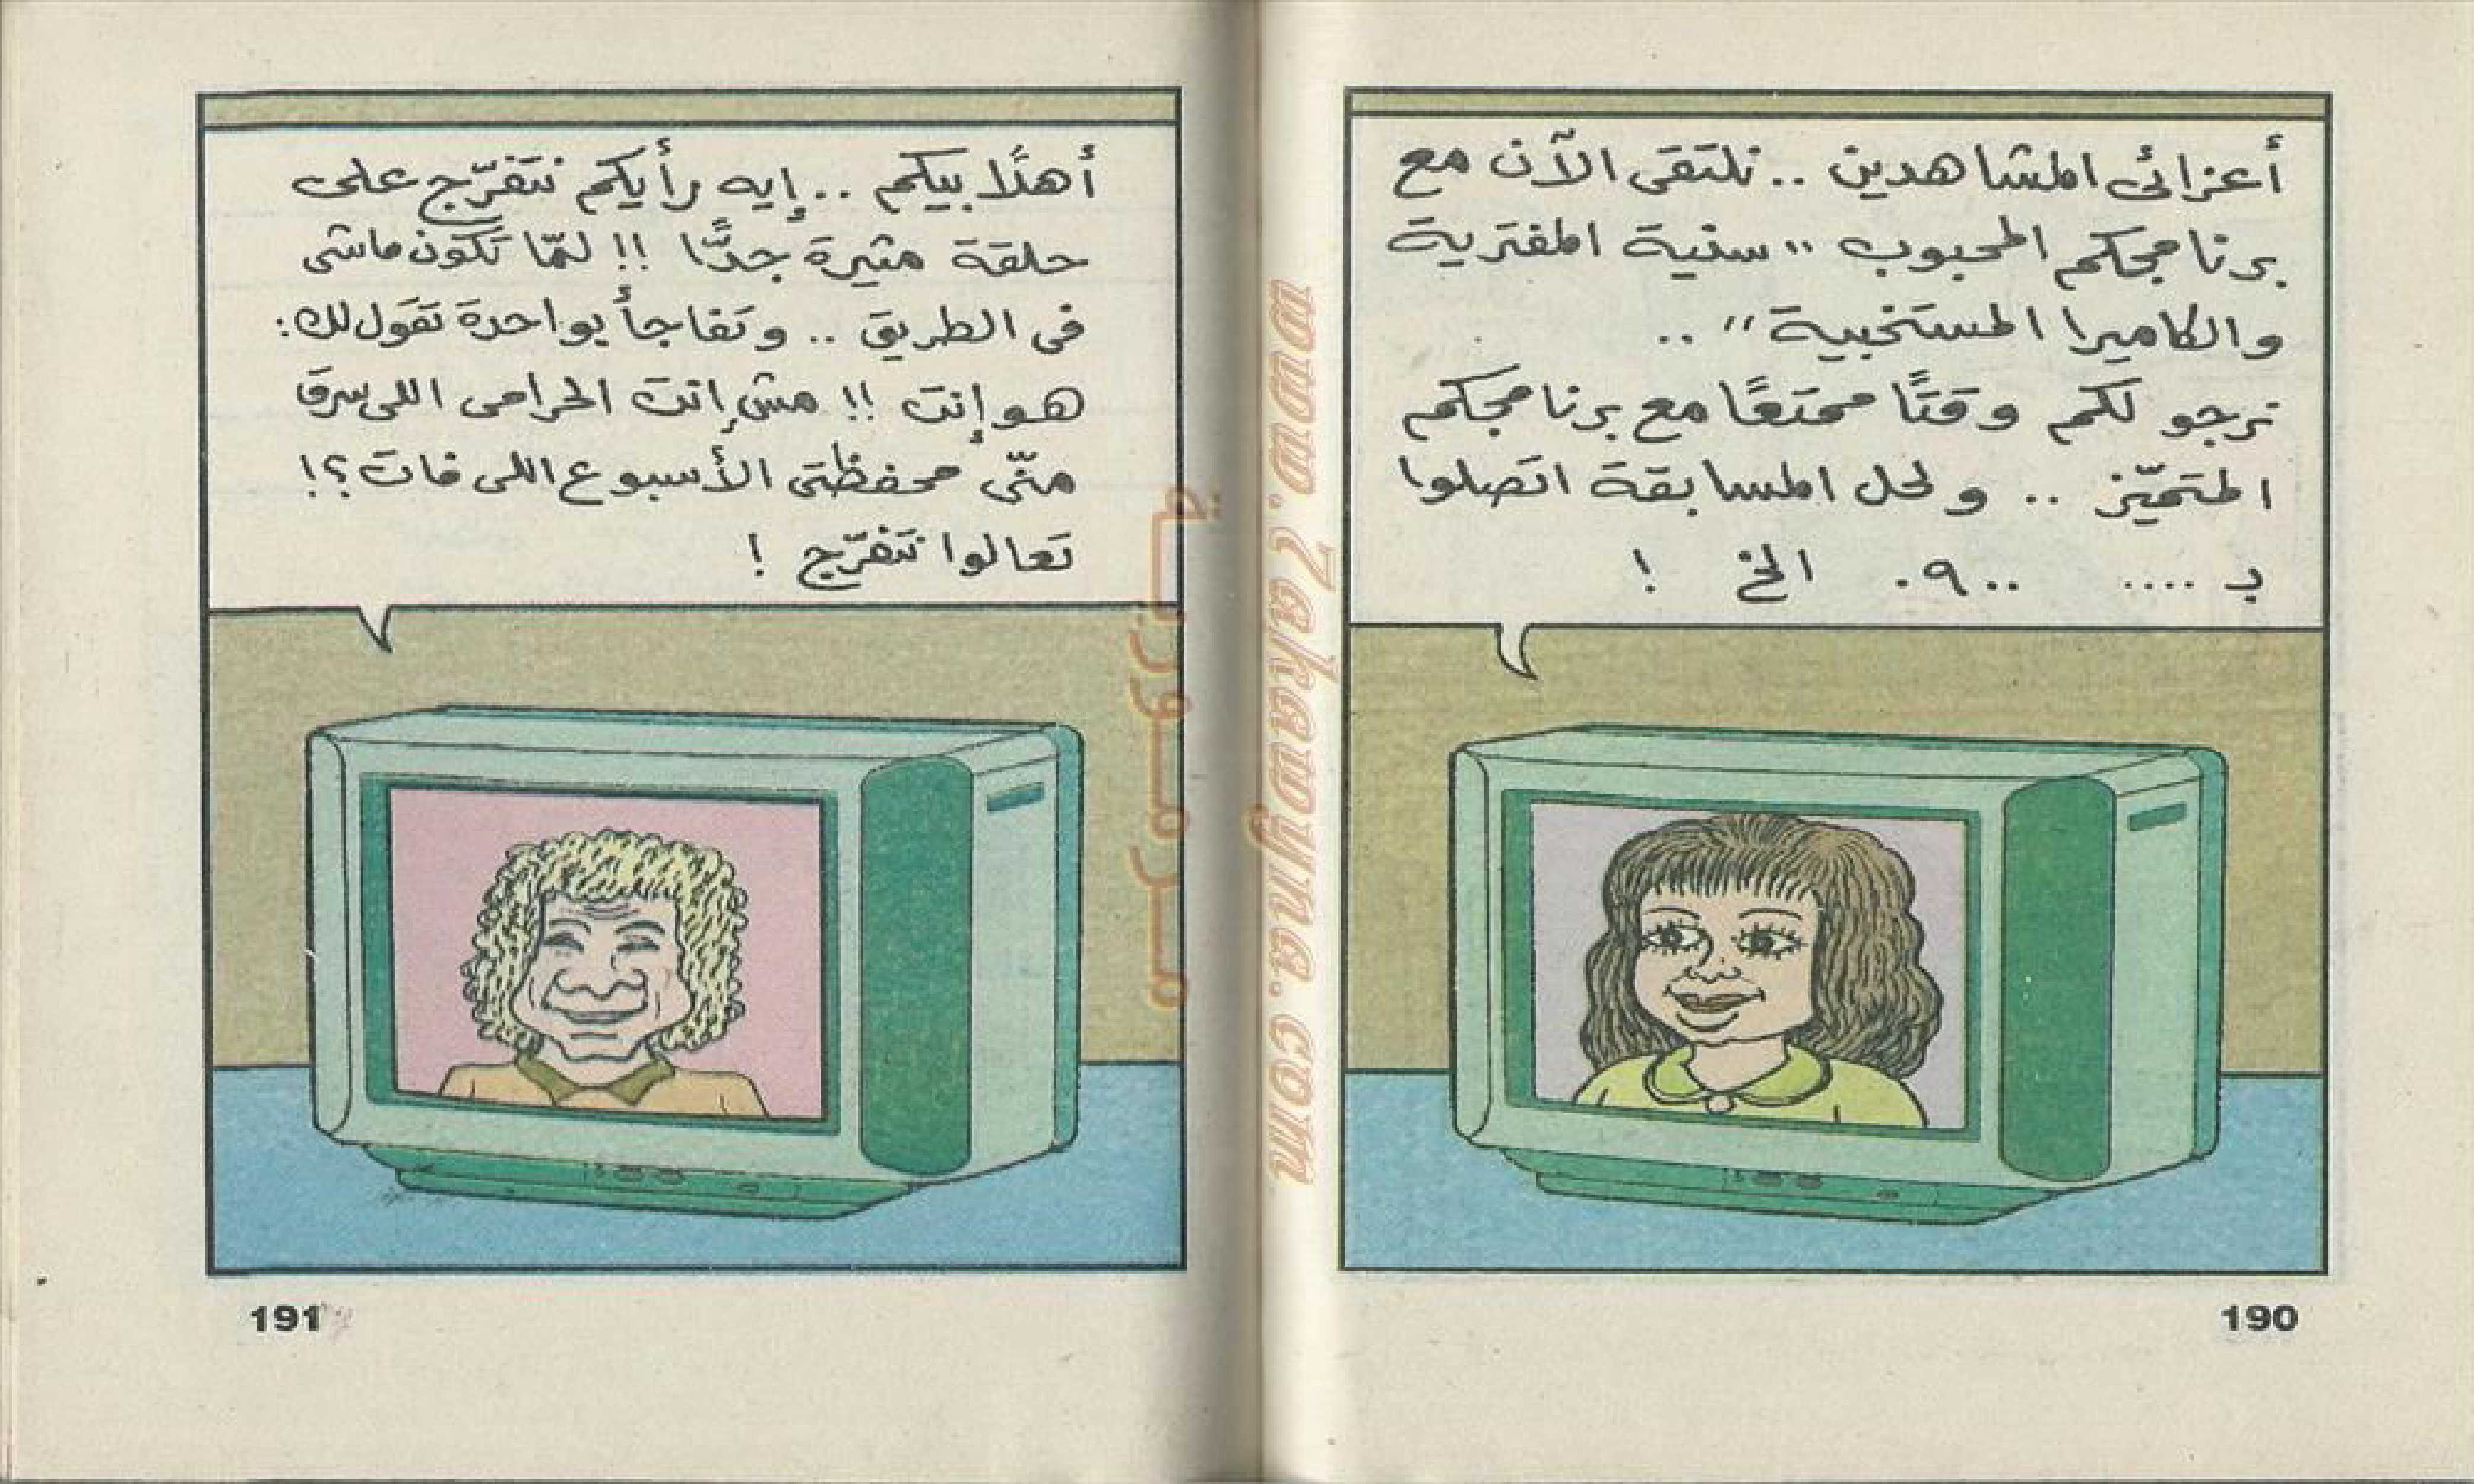 أعزائى المشاهدين .. نلتقى الآن مع
برنامجكم المحبوب "سنية المفترية
والكاميرا المستخبية" ..
نرجو لكم وقتًا ممتعًا مع برنامجكم
المتميّز .. ولحل المسابقة اتصلوا
بـ .... ٠٩٠٠ الخ !
190
أهلًا بيكم .. إيه رأيكم نتفرّج على
حلقة مثيرة جدًّا !! لمّا تكون ماشى
فى الطريق .. وتفاجأ بواحدة تقول لك:
هو إنت !! مش إنت الحرامى اللى سرق
منّى محفظتى الأسبوع اللى فات ؟!
تعالوا نتفرّج !
191
www.Zakawyna.com